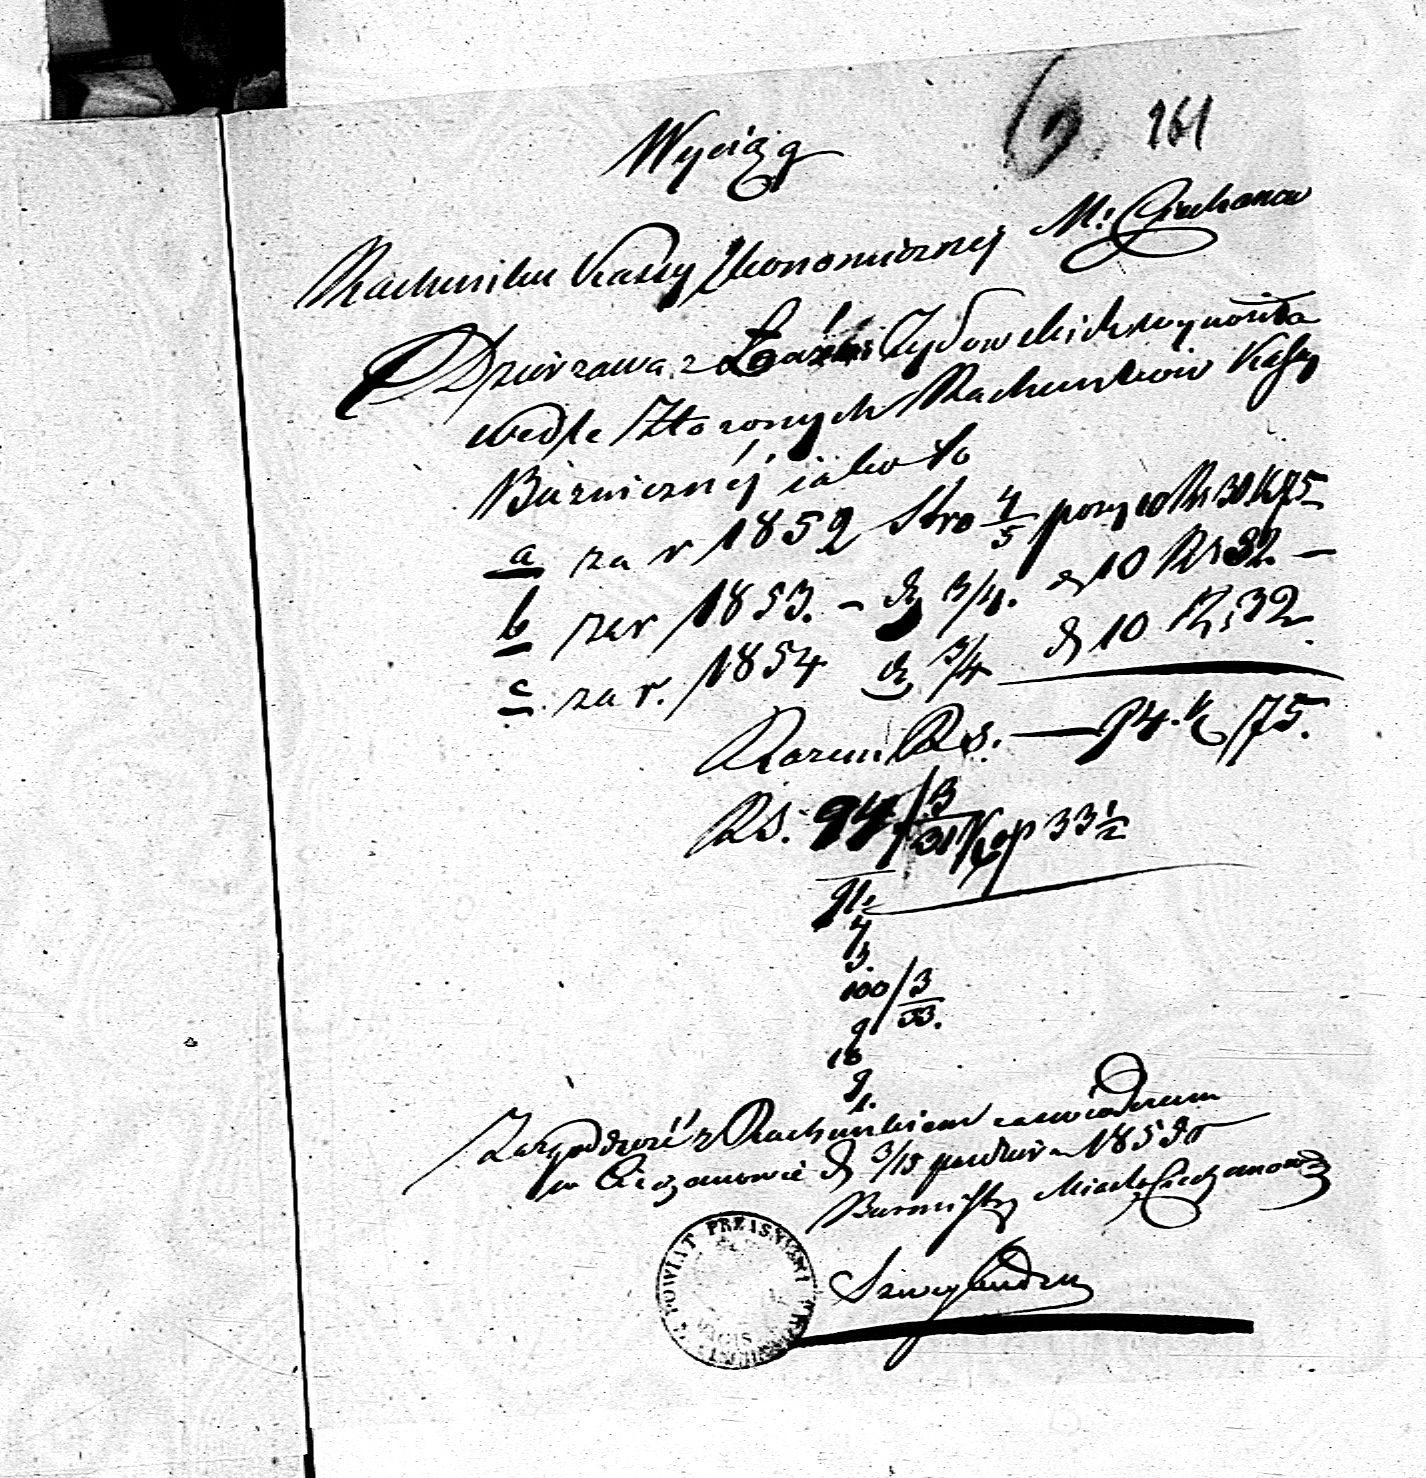 161
Wyciąg
Rachunku Kassy Ekonomicznej M. Ciechanow
Dzierzawa z Łaźni Żydowskich wynosiła
wedle złozonych Rachunków Kassy
Bużniczněj iako to
a za r 1852 Stro 4/5 pozy 10 Rs 30 k 75
b za r 1853. – dº 3/4. dº 10 Rs 32 –
c za r. 1854 dº 3/4 dº 10 Rs 32
Razem Rs. — 94. k 75.
Rs. 94/3 31 Kop 33 1/2
91.
4
3.
100/3 33.
9
10
9
1.
Zazgodność z Rachunkiem zaświadczam
w Ciechanowie d 3/15 1859 r
Burmistrz Miasta Ciechanowa
POWIAT PRZASNYSKI